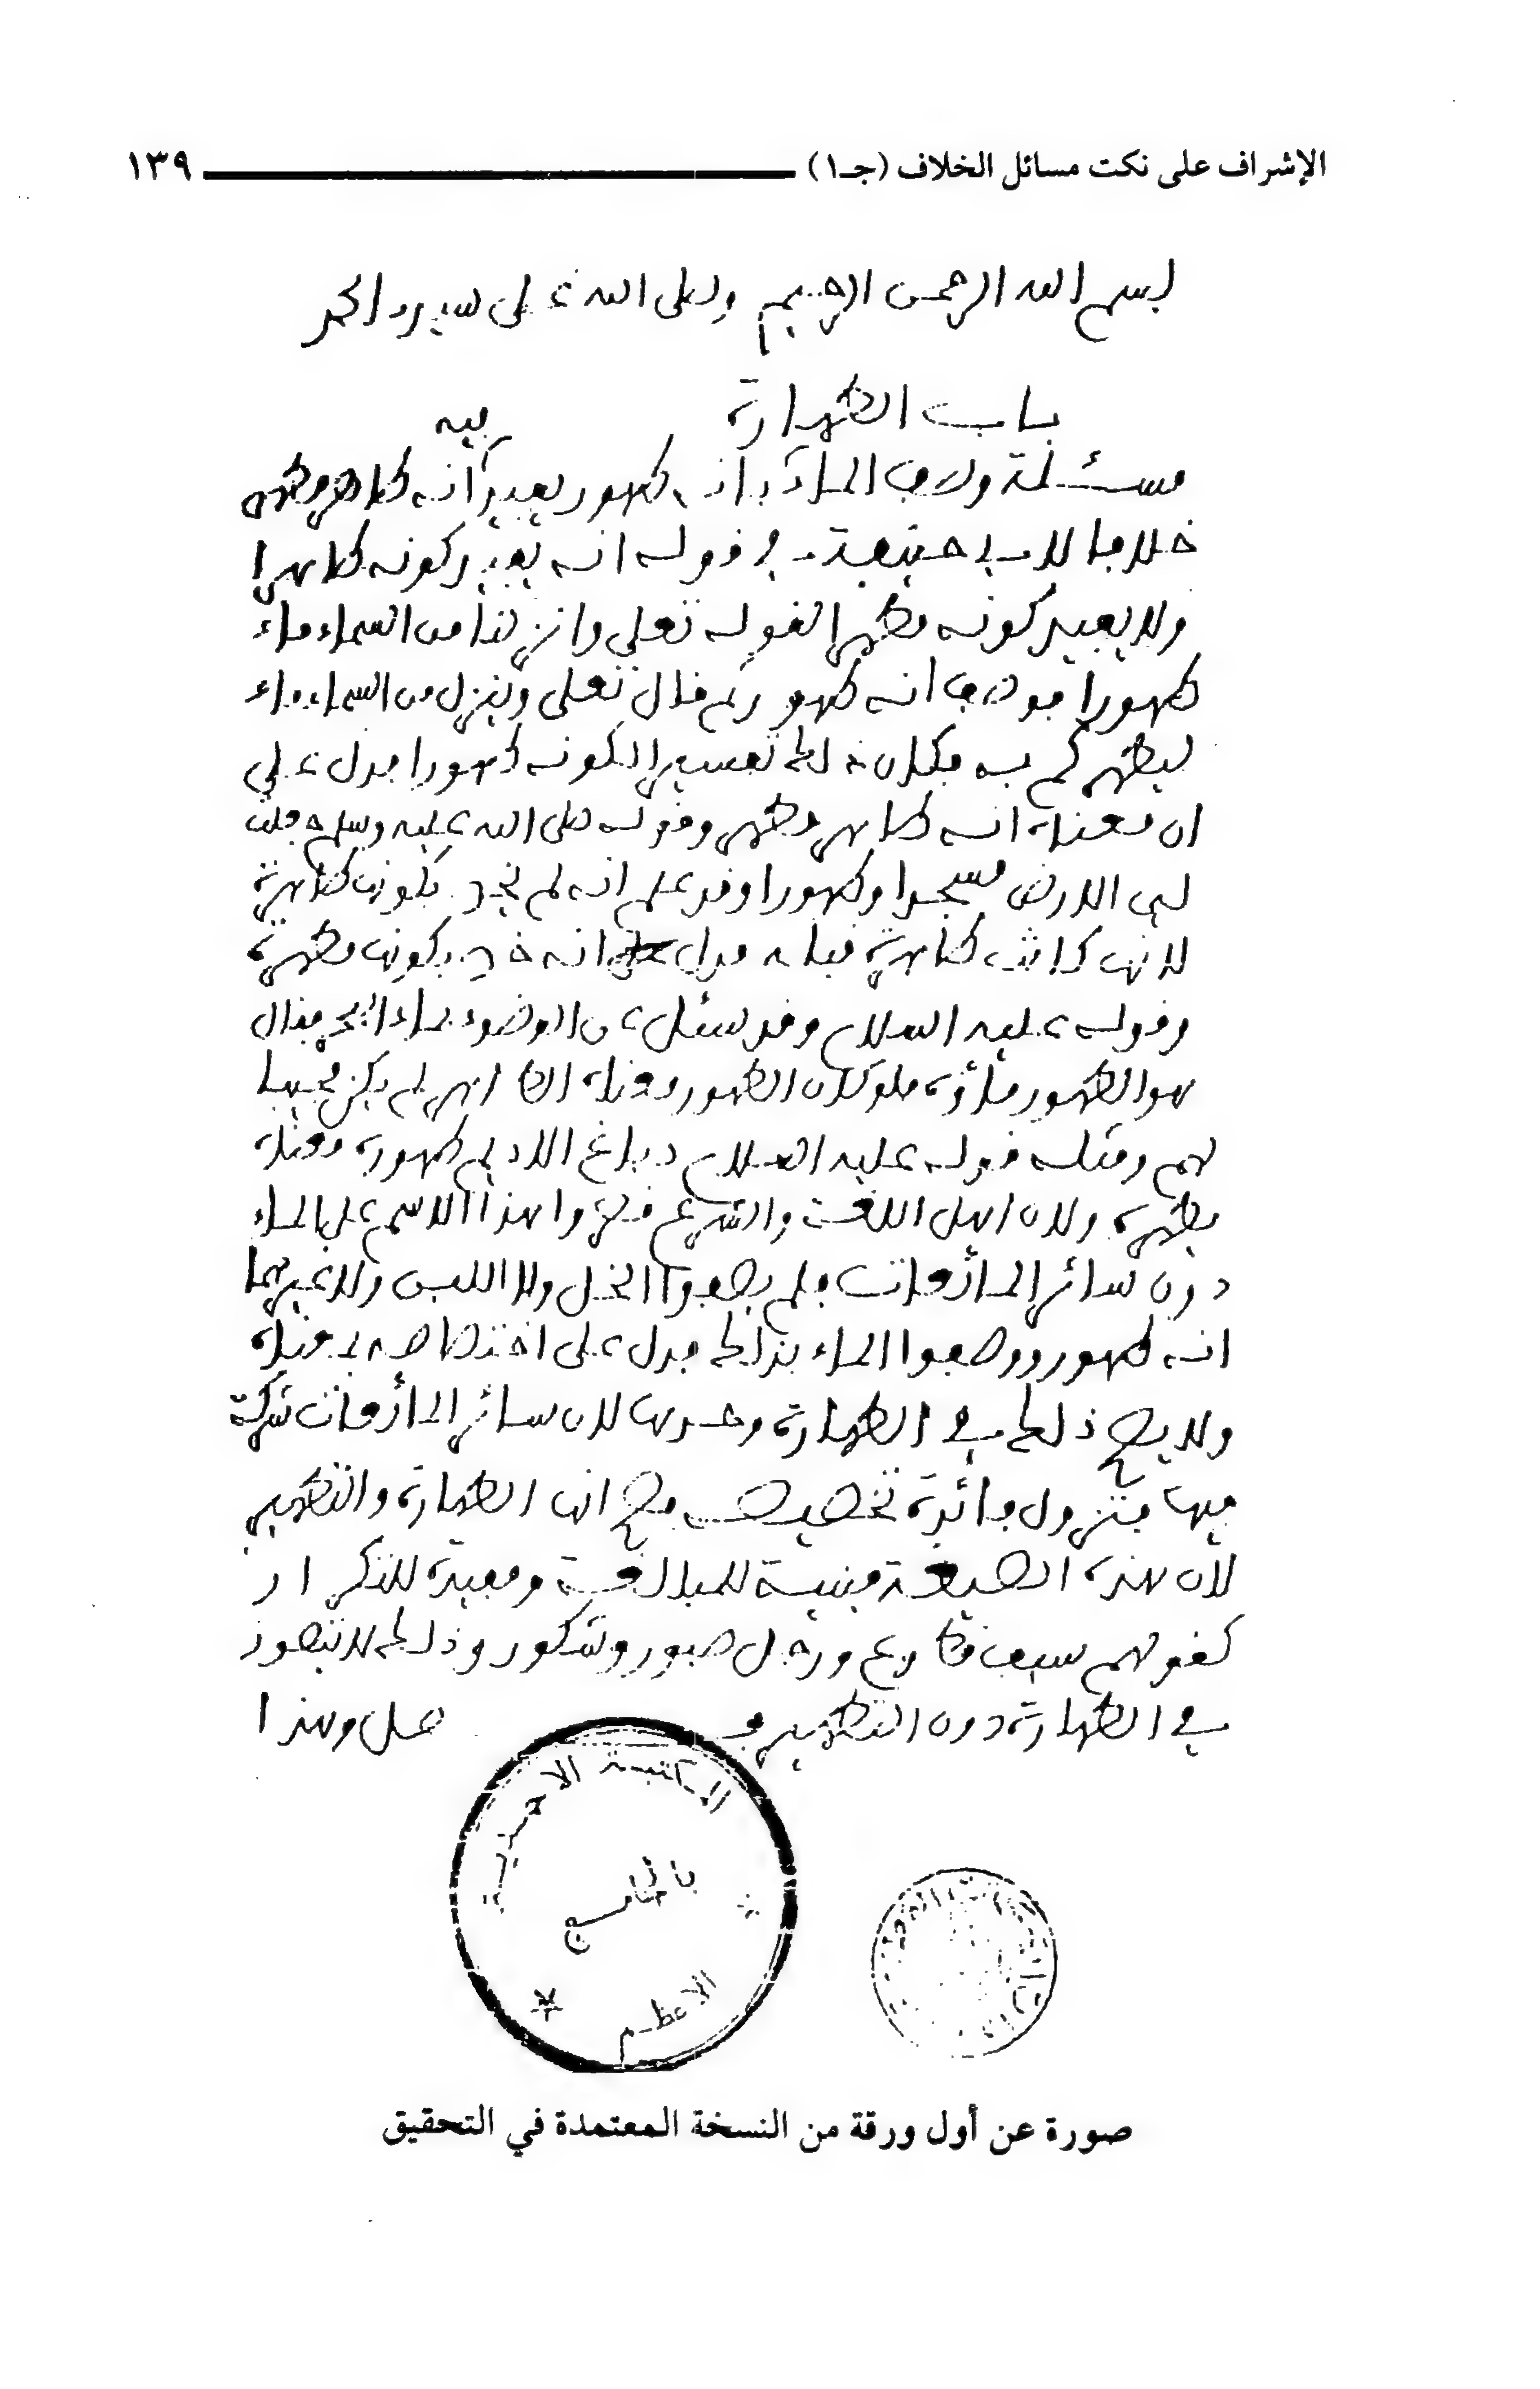 الإشراف على نكت مسائل الخلاف (جـ١) ١٣٩
بسم الله الرحمن الرحيم وصلى الله على سيدنا محمد
باب الطهارة
فيه
مسئلة وصف الماء بانه طهور يفيد انه طاهر مطهر
خلافا لابي حنيفة في قوله انه يفيد كونه طاهرا
ولا يفيد كونه مطهرا لقوله تعلى وانزلنا من السماء ماء
طهورا فوصف انه طهور ثم قال تعلى وينزل من السماء ماء
ليطهركم به فكان ذلك تفسيرا لكونه طهورا فدل على
ان معناه انه طاهر مطهر وقوله صلى الله عليه وسلم جعلت
لي الارض مسجدا وطهورا وقد علم انه لم يخبر بكونها طاهرة
لانها كانت طاهرة قبله فدل على انه خبر بكونها مطهرة
وقوله عليه السلام وقد سئل عن الوضوء بماء البحر فقال
هو الطهور ماؤه فلو كان الطهور معناه الطاهر لم يكن مجيبا
لهم ومثله قوله عليه السلام دباغ الاديم طهوره معناه
مطهره ولان اهل اللغة والشرع قصروا هذا الاسم على الماء
دون سائر المائعات فلم يصفوا الخل ولا اللبن ولا غيرهما
انه طهور ووصفوا الماء بذلك فدل على اختصاصه بمعناه
ولا يصح ذلك في الطهارة وحدها لان سائر المائعات شركة
فيها فتزول فائدة تخصيصه فصح انها الطهارة والتطهير
لان هذه الصيغة مبنية للمبالغة ومفيدة للتكرار
كقولهم سيف قطوع ورجل صبور وشكور وذلك لا يتصور
في الطهارة دون التطهير فصل وهذا
المكتبة الاحمدية
بالجامع
الاعظم
صورة عن أول ورقة من النسخة المعتمدة في التحقيق